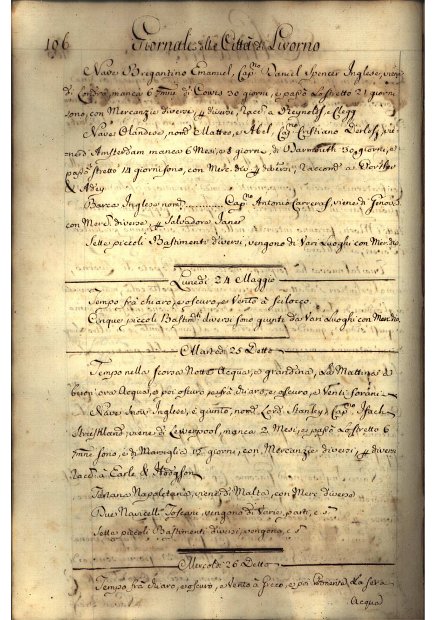 196 Giornale della Città di Livorno
Nave Bregantino Emanuel, Cap.no Daniel Spencer Inglese, viene
di Londra manca 6 mne di Cowes 30 giorni, e passò lo stretto 21 giorni
sono, con Mercanzie diverse, Racc.a a Reynolds, e Clegg
Nave Olandese, nom.
di Amsterdam manca 6 Mesi, e 8 giorni, di Yarmouth 30 giorni, e
passò stretto 14 giorni sono, con Merc. div.
& Adey
Barca Inglese nom.ta ........... Cap.no Antonio Carreras, viene di
con Merc. diverse, Salvadore
Sette piccoli Bastimenti diversi, vengono di Vari Luoghi con Mer.die
Lunedì 24 Maggio
Tempo frà chiaro, e oscuro, e Vento à Scilocco
Cinque piccoli Bastim.ti diversi sono giunti da Vari Luoghi con Mer.die
Martedì 25 Detto
Tempo nella scorsa Notte Acqua, e grandina, La Mattina
ora Acqua, e poi oscuro, e oscuro, e Venti
Nave Inglese, nom. Lord Stanley Cap.no Isach
Strickland, viene di Liwerpool, manca 2 Mesi, e passò Lo stretto 6
mne sono, e di Marsiglia 12 giorni, con Mercanzie diverse,
Racc.a à Earle & Hodgson
Tartana Napoletana, viene di Malta, con Merc. diverse
Due Navicelli Toscani, vengono di Varie parti, e s.
Sette piccoli Bastimenti diversi, vengono, e s.
Mercoldì 26 Detto
Tempo frà chiaro, e oscuro, e Vento à e poi La sera
Acqua